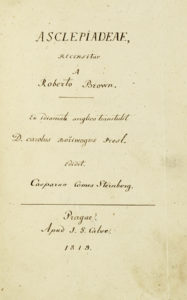 ASCLEPIADEAE,
recensitae
A
Roberto Brown.
Ex idiomate anglico transtulit
D. carolus Boriwogus Presl.
Edidit
Casparus Comes Sternberg.
Pragae.
Apud J. G. Calve.
1819.